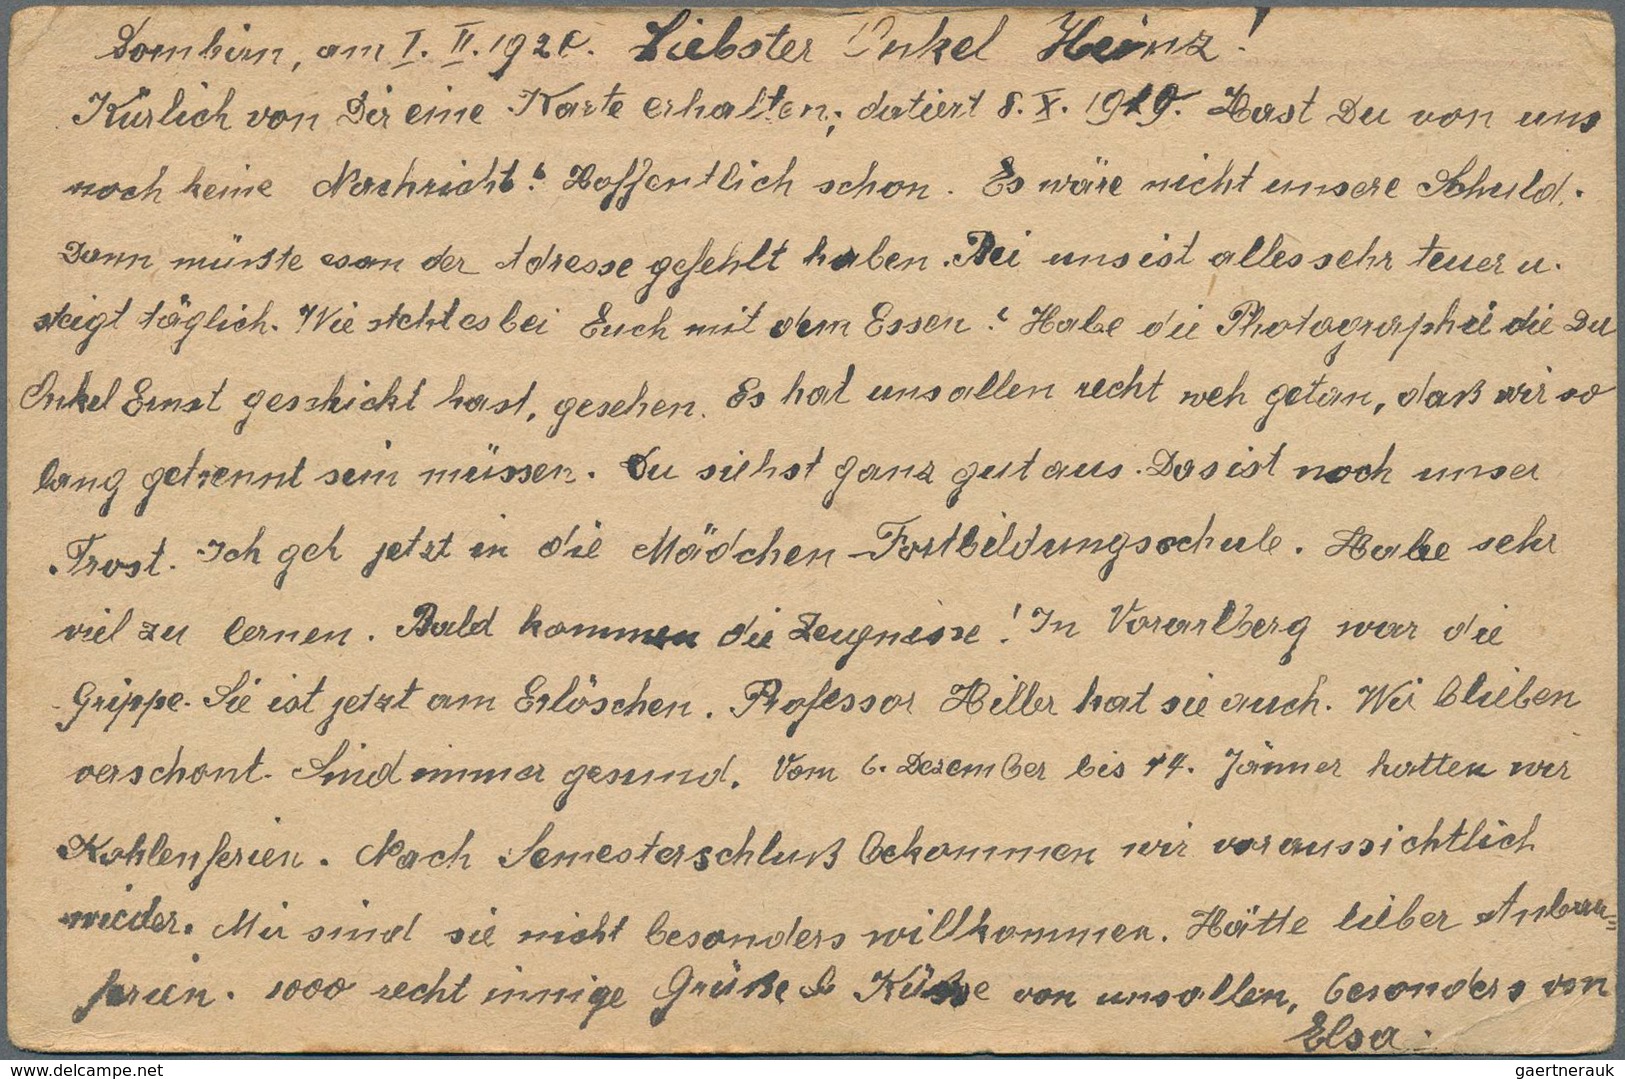 Dornbirn, am I. II. 1920. Liebster Onkel Heinz!
Kürlich von Dir eine Karte erhalten, datiert 8. X. 1919. Hast Du von uns
noch keine Nachricht? Hoffentlich schon. Es wäre nicht unsere Schuld.
Dann müßte es an der Adresse gefehlt haben. Bei uns ist alles sehr teuer u.
steigt täglich. Wie steht es bei Euch mit dem Essen? Habe die Photographie die Du
Onkel Ernst geschickt hast, gesehen. Es hat uns allen recht weh getan, daß wir so
lang getrennt sein müssen. Du siehst ganz gut aus. Das ist noch unser
Trost. Ich geh jetzt in die Mädchen-Fortbildungsschule. Habe sehr
viel zu lernen. Bald kommen die Zeugnisse! In Vorarlberg war die
Grippe. Sie ist jetzt am Erlöschen. Professor Hiller hat sie auch. Wir blieben
verschont. Sind immer gesund. Vom 6. Dezember bis 14. Jänner hatten wir
Kohlenferien. Nach Semesterschluß bekommen wir voraussichtlich
wieder. Mir sind sie nicht besonders willkommen. Hätte lieber
ferien. 1000 recht innige Grüße & Küsse von uns allen, besonders von
Elsa.
www.delcampe.net
gaertnerauk